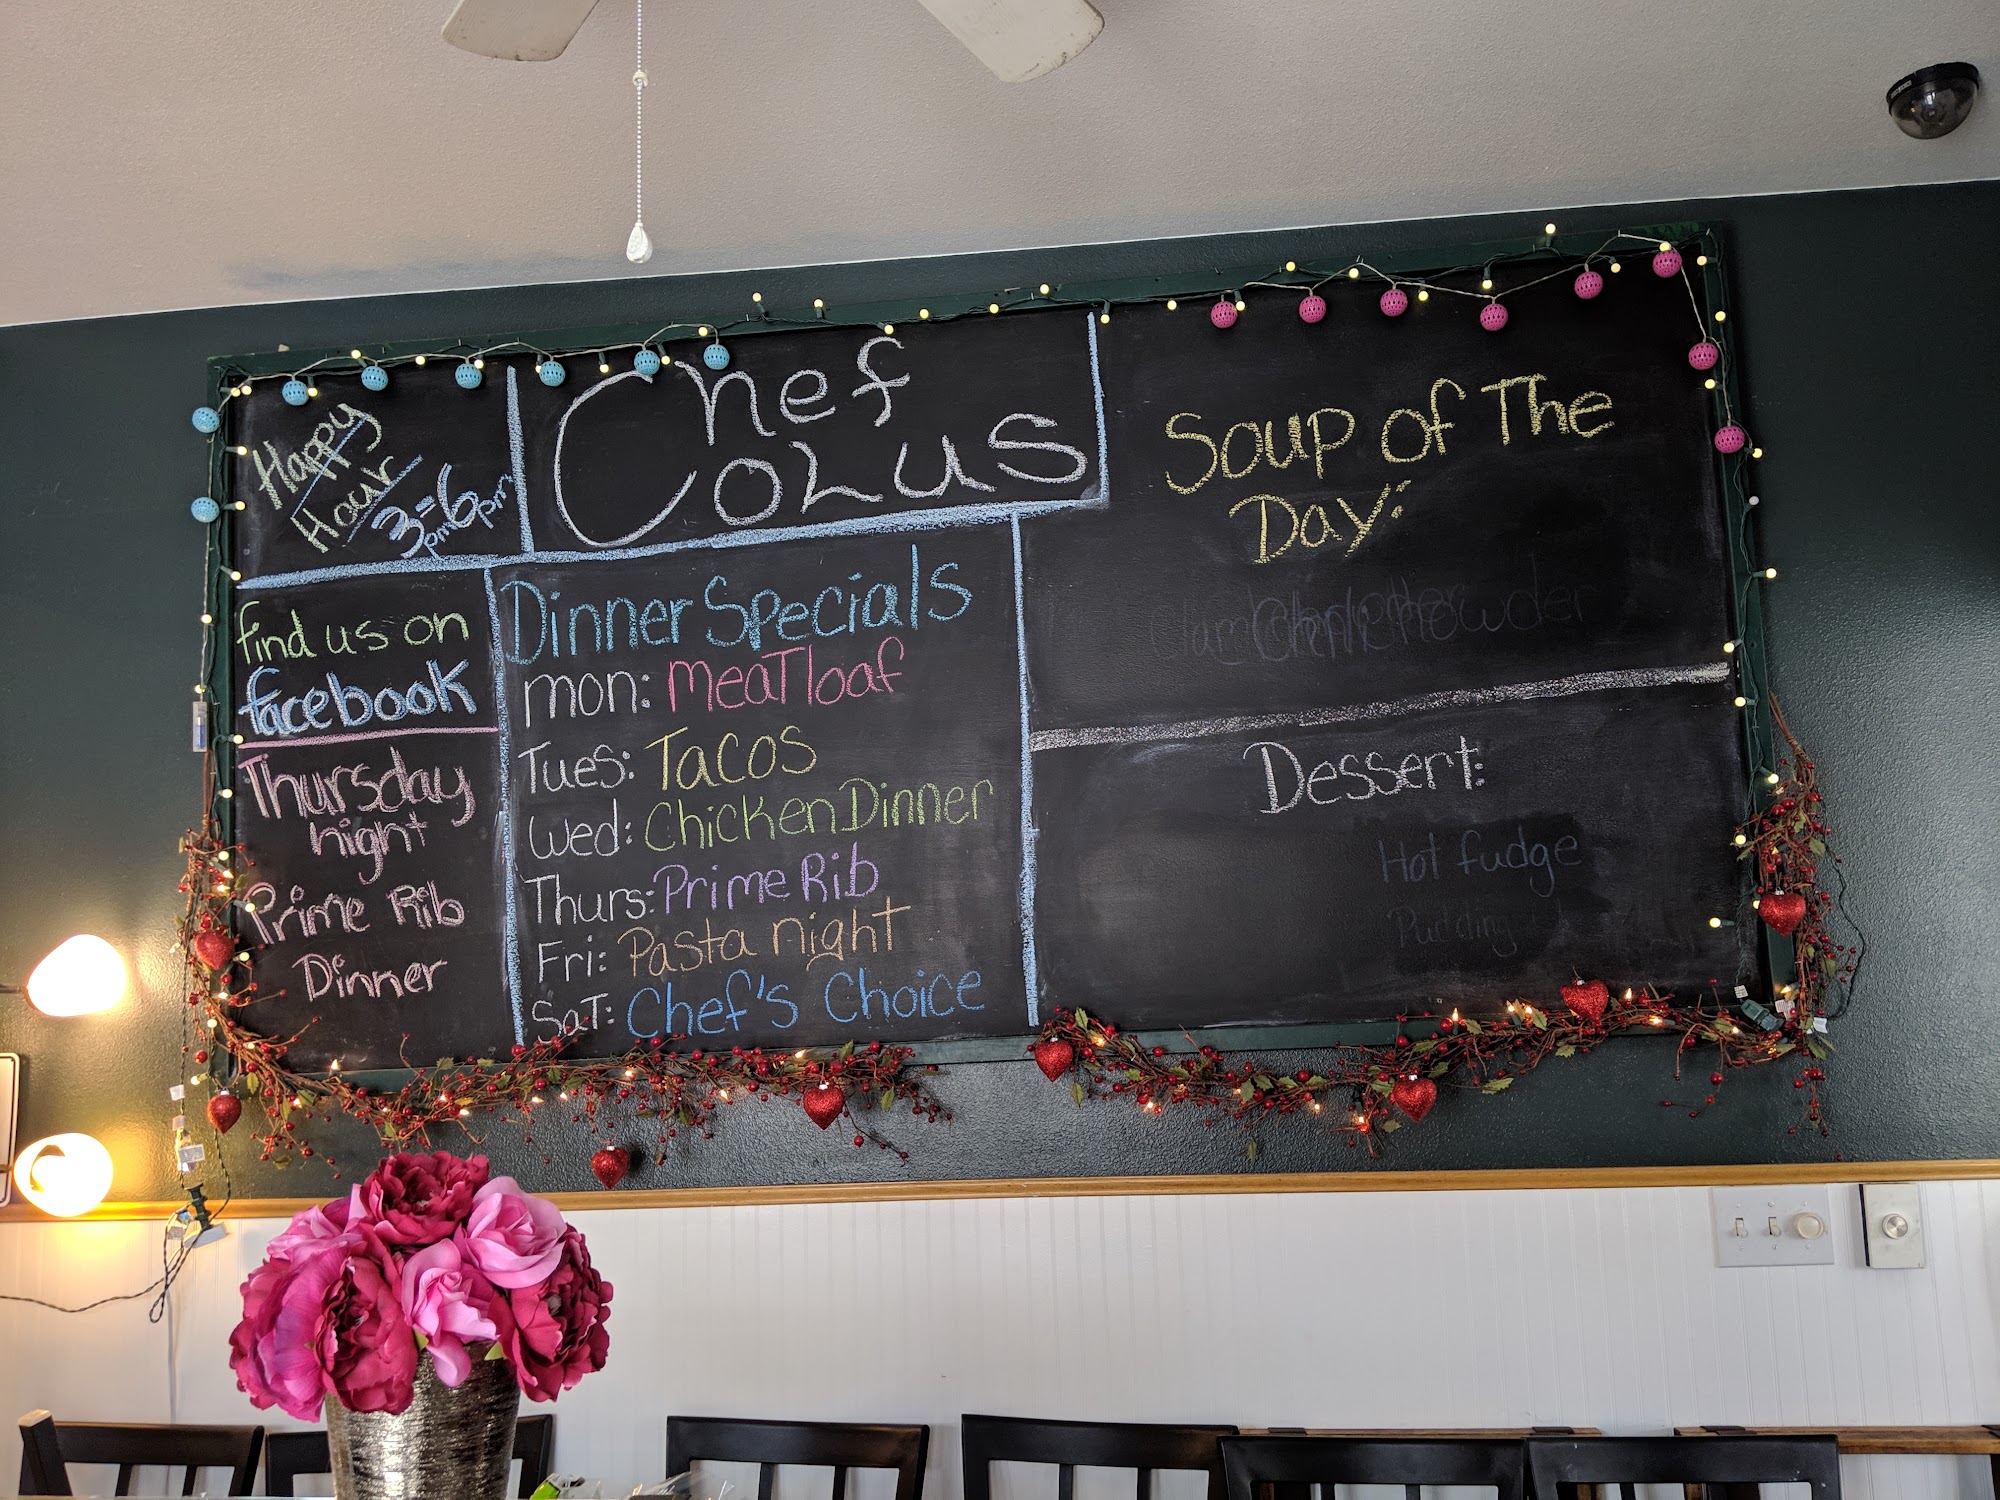 Happy
Hour
3pm-6pm
Chef
Colus
find us on
facebook
Thursday
night
Prime Rib
Dinner
Dinner Specials
mon: meaTloaf
Tues: Tacos
Wed: Chicken Dinner
Thurs: Prime Rib
Fri: Pasta night
SaT: Chef's Choice
Soup of The
Day:
Dessert:
Hot fudge
Pudding